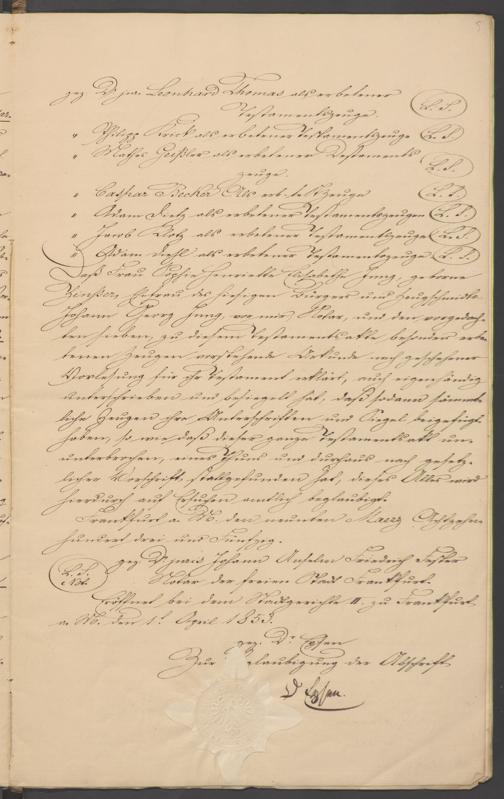 5
gez. D. jur. Leonhard Thomas als erbetener
Testamentszeuge. L. S.
" Philipp Krick als erbetener Testamentszeuge L. S.
" Mathes Geißler als erbetener Testaments
zeuge. L. S.
" Caspar Becker als erb. Test. Zeuge L. S.
" Adam Dietz als erbetener Testamentszeuge L. S.
" Jacob Kotz als erbetener Testamentszeuge L. S.
" Adam Diehl als erbetener Testamentszeuge L. S.
Daß Frau Sophie Henriette Elisabethe Jung, geborne
Ehefrau des hiesigen Bürgers und
Johann Georg Jung, vor mir Notar, und den vorgedach-
ten sieben, zu diesem Testamentsakte besonders erbe-
tenen Zeugen vorstehende Urkunde nach geschehener
Vorlesung für ihr Testament erklärt, auch eigenhändig
unterschrieben und besiegelt hat, daß sodann sämmt-
liche Zeugen ihre Unterschriften und Siegel beigefügt
haben, so wie daß dieser ganze Testamentsakt un-
unterbrochen, eines Thuns und durchaus nach gesetz-
licher Vorschrift stattgefunden hat, dieses Alles wird
hierdurch auf Ersuchen amtlich beglaubigt.
Frankfurt a. M. den neunten Maerz Achtzehn-
hundert drei und Fünfzig.
L. S. Not. gez. D. juris Johann Anselm Friedrich Fester
Notar der freien Stadt Frankfurt.
Eröffnet bei dem Stadtgerichte II. zu Frankfurt
a. M. den 1. April 1853.
gez. Dr.
Zur Beglaubigung der Abschrift
D